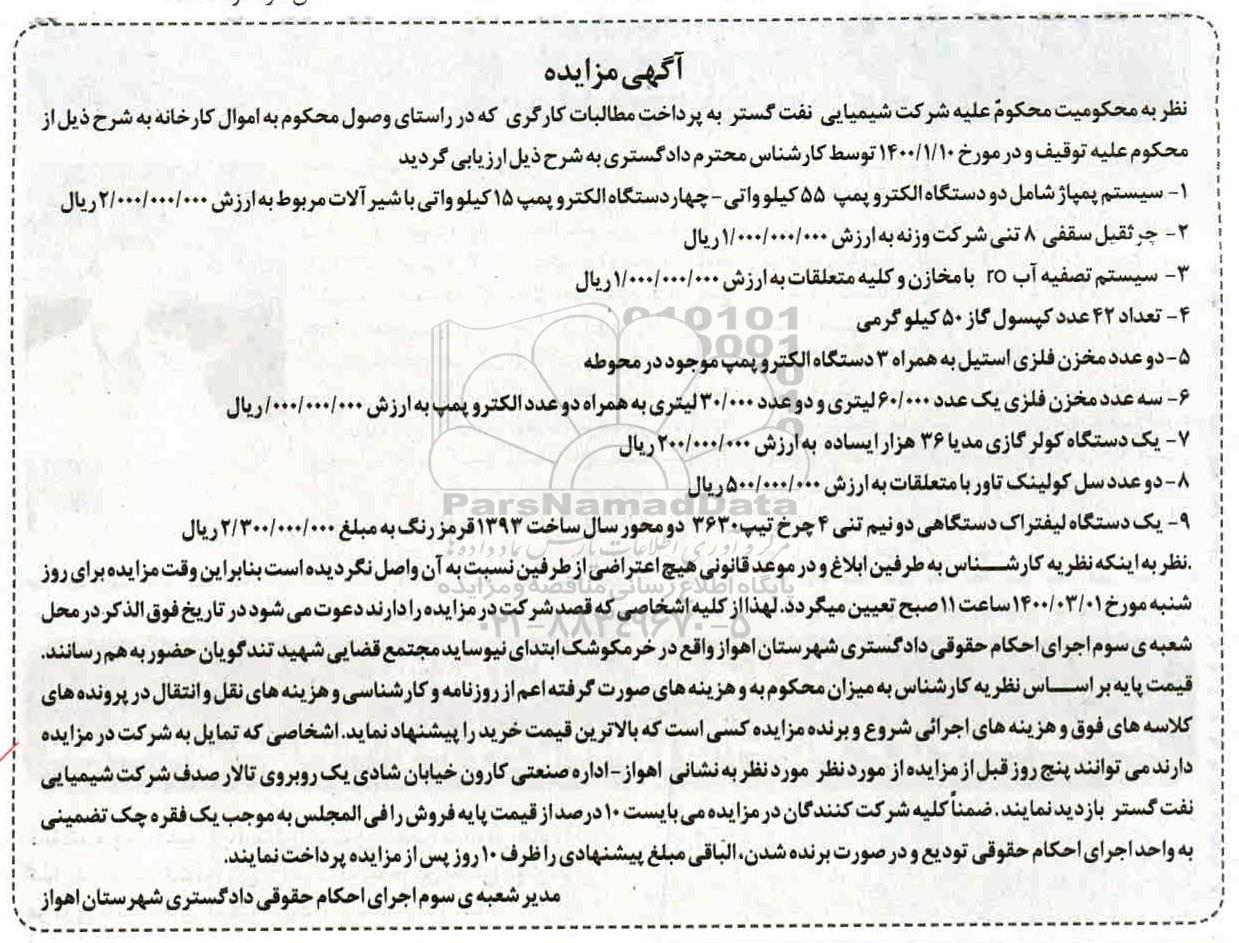 آگهی مزایده
نظر به محکومیت محکومٌ علیه شرکت شیمیایی نفت گستر به پرداخت مطالبات کارگری که در راستای وصول محکوم به اموال کارخانه به شرح ذیل از
محکوم علیه توقیف و در مورخ ۱۴۰۰/۱/۱۰ توسط کارشناس محترم دادگستری به شرح ذیل ارزیابی گردید
۱- سیستم پمپاژ شامل دو دستگاه الکترو پمپ ۵۵ کیلو واتی - چهار دستگاه الکترو پمپ ۱۵ کیلو واتی با شیر آلات مربوط به ارزش ۲/۰۰۰/۰۰۰/۰۰۰ ریال
۲- جرثقیل سقفی ۸ تنی شرکت وزنه به ارزش ۱/۰۰۰/۰۰۰/۰۰۰ ریال
۳- سیستم تصفیه آب ro با مخازن و کلیه متعلقات به ارزش ۱/۰۰۰/۰۰۰/۰۰۰ ریال
۴- تعداد ۴۲ عدد کپسول گاز ۵۰ کیلو گرمی
۵- دو عدد مخزن فلزی استیل به همراه ۳ دستگاه الکترو پمپ موجود در محوطه
۶- سه عدد مخزن فلزی یک عدد ۶۰/۰۰۰ لیتری و دو عدد ۳۰/۰۰۰ لیتری به همراه دو عدد الکترو پمپ به ارزش ۰۰۰/۰۰۰/۰۰۰/ ریال
۷- یک دستگاه کولر گازی مدیا ۳۶ هزار ایساده به ارزش ۲۰۰/۰۰۰/۰۰۰ ریال
۸- دو عدد سل کولینک تاور با متعلقات به ارزش ۵۰۰/۰۰۰/۰۰۰ ریال
۹- یک دستگاه لیفتراک دستگاهی دو نیم تنی ۴ چرخ تیپ ۳۶۳۰ دو محور سال ساخت ۱۳۹۳ قرمز رنگ به مبلغ ۲/۳۰۰/۰۰۰/۰۰۰ ریال
.نظر به اینکه نظریه کارشناس به طرفین ابلاغ و در موعد قانونی هیچ اعتراضی از طرفین نسبت به آن واصل نگردیده است بنابراین وقت مزایده برای روز
شنبه مورخ ۱۴۰۰/۰۳/۰۱ ساعت ۱۱ صبح تعیین میگردد. لهذا از کلیه اشخاصی که قصد شرکت در مزایده را دارند دعوت می شود در تاریخ فوق الذکر در محل
شعبه ی سوم اجرای احکام حقوقی دادگستری شهرستان اهواز واقع در خرمکوشک ابتدای نیوساید مجتمع قضایی شهید تندگویان حضور به هم رسانند.
قیمت پایه بر اساس نظریه کارشناس به میزان محکوم به و هزینه های صورت گرفته اعم از روزنامه و کارشناسی و هزینه های نقل و انتقال در پرونده های
کلاسه های فوق و هزینه های اجرائی شروع و برنده مزایده کسی است که بالاترین قیمت خرید را پیشنهاد نماید. اشخاصی که تمایل به شرکت در مزایده
دارند می توانند پنج روز قبل از مزایده از مورد نظر مورد نظر به نشانی اهواز - اداره صنعتی کارون خیابان شادی یک روبروی تالار صدف شرکت شیمیایی
نفت گستر بازدید نمایند. ضمناً کلیه شرکت کنندگان در مزایده می بایست ۱۰ درصد از قیمت پایه فروش را فی المجلس به موجب یک فقره چک تضمینی
به واحد اجرای احکام حقوقی تودیع و در صورت برنده شدن، الباقی مبلغ پیشنهادی را ظرف ۱۰ روز پس از مزایده پرداخت نمایند.
مدیر شعبه ی سوم اجرای احکام حقوقی دادگستری شهرستان اهواز
ParsNamadData
پایگاه اطلاع رسانی مناقصه و مزایده
۰۲۱-۸۸۳۴۹۶۷۰-۵